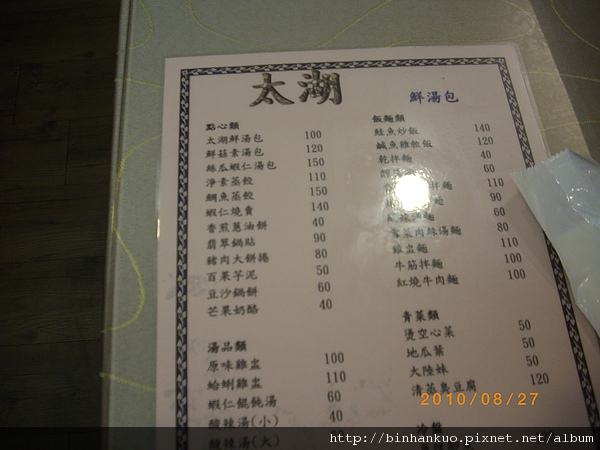 太湖
鮮湯包
點心類
太湖鮮湯包 100
鮮菇素湯包 120
絲瓜蝦仁湯包 150
淨素蒸餃 110
鯛魚蒸餃 150
蝦仁燒賣 140
香煎蔥油餅 40
翡翠鍋貼 90
豬肉大餅捲 80
百果芋泥 50
豆沙鍋餅 60
芒果奶酪 40
湯品類
原味雞盅 100
蛤蜊雞盅 110
蝦仁餛飩湯 60
酸辣湯(小) 40
酸辣湯(大) 80
飯麵類
鮭魚炒飯 140
鹹魚雞粒飯 120
乾拌麵 40
60
拌麵 110
麵 90
麵 60
雪菜肉絲湯麵 80
雞盅麵 110
牛筋拌麵 100
紅燒牛肉麵 100
青菜類
燙空心菜 50
地瓜葉 50
大陸妹 50
清蒸臭豆腐 120
冷盤
2010/08/27
http://binhankuo.pixnet.net/album